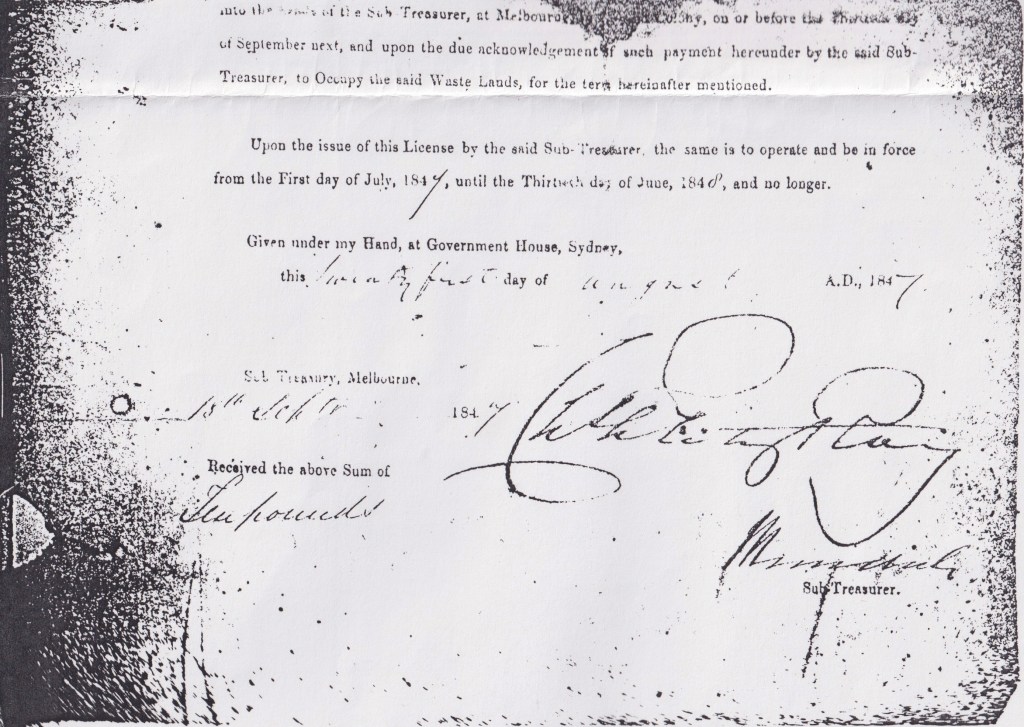 into the hands of the Sub Treasurer, at Melbourne, Colony, on or before the Thirtieth day
of September next, and upon the due acknowledgement of such payment hereunder by the said Sub-
Treasurer, to Occupy the said Waste Lands, for the term hereinafter mentioned.
Upon the issue of this License by the said Sub-Treasurer, the same is to operate and be in force
from the First day of July, 1847, until the Thirtieth day of June, 1848, and no longer.
Given under my Hand, at Government House, Sydney,
this twenty first day of august A.D., 1847.
Sub Treasury, Melbourne,
15th Septr 1847
Received the above Sum of
Ten pounds
Sub Treasurer.